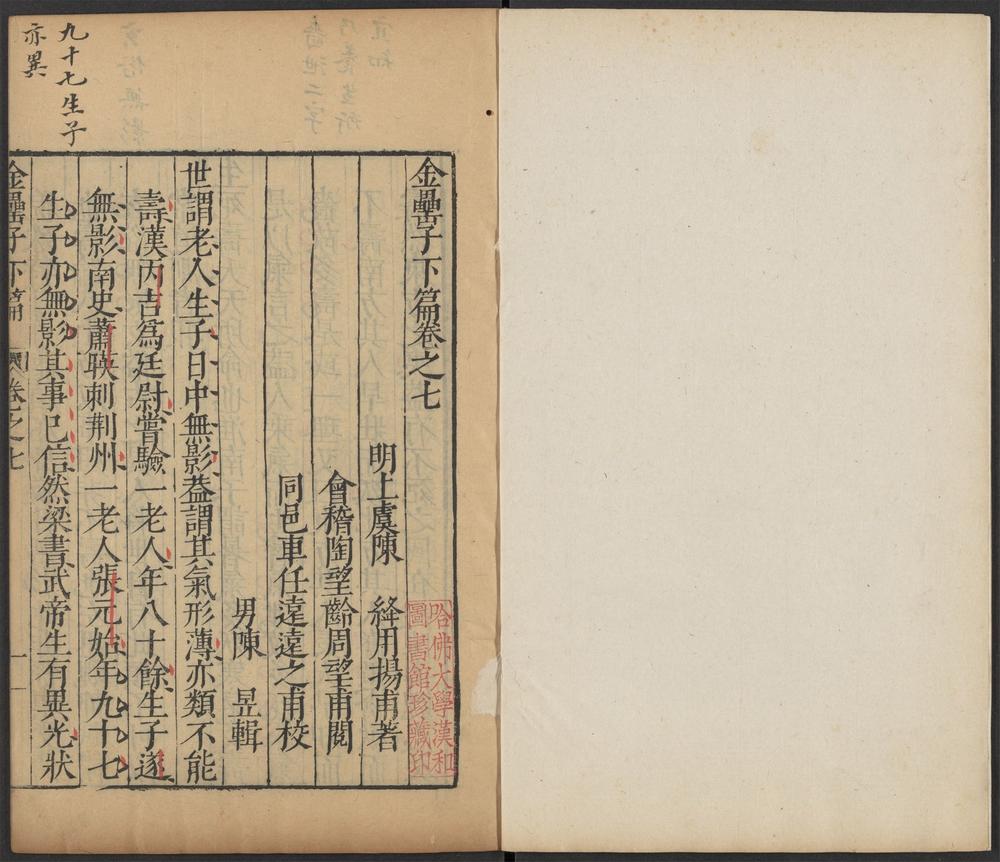 金罍子下篇卷之七
明上虞陳　絳用揚甫著
會稽陶望齡周望甫閱
同邑車任遠遠之甫校
男陳　昱輯
世謂老人生子日中無影葢謂其氣形薄亦類不能
壽漢丙吉爲廷尉嘗驗一老人年八十餘生子遂
無影南史蕭暎刺荆州一老人張元始年九十七
生子亦無影其事已信然梁書武帝生有異光狀
金罍子下篇　卷之七　一
九十七生子
亦異
哈佛大學漢和
圖書館珍藏印